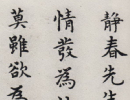 静春先生
情發為
莫雖欲